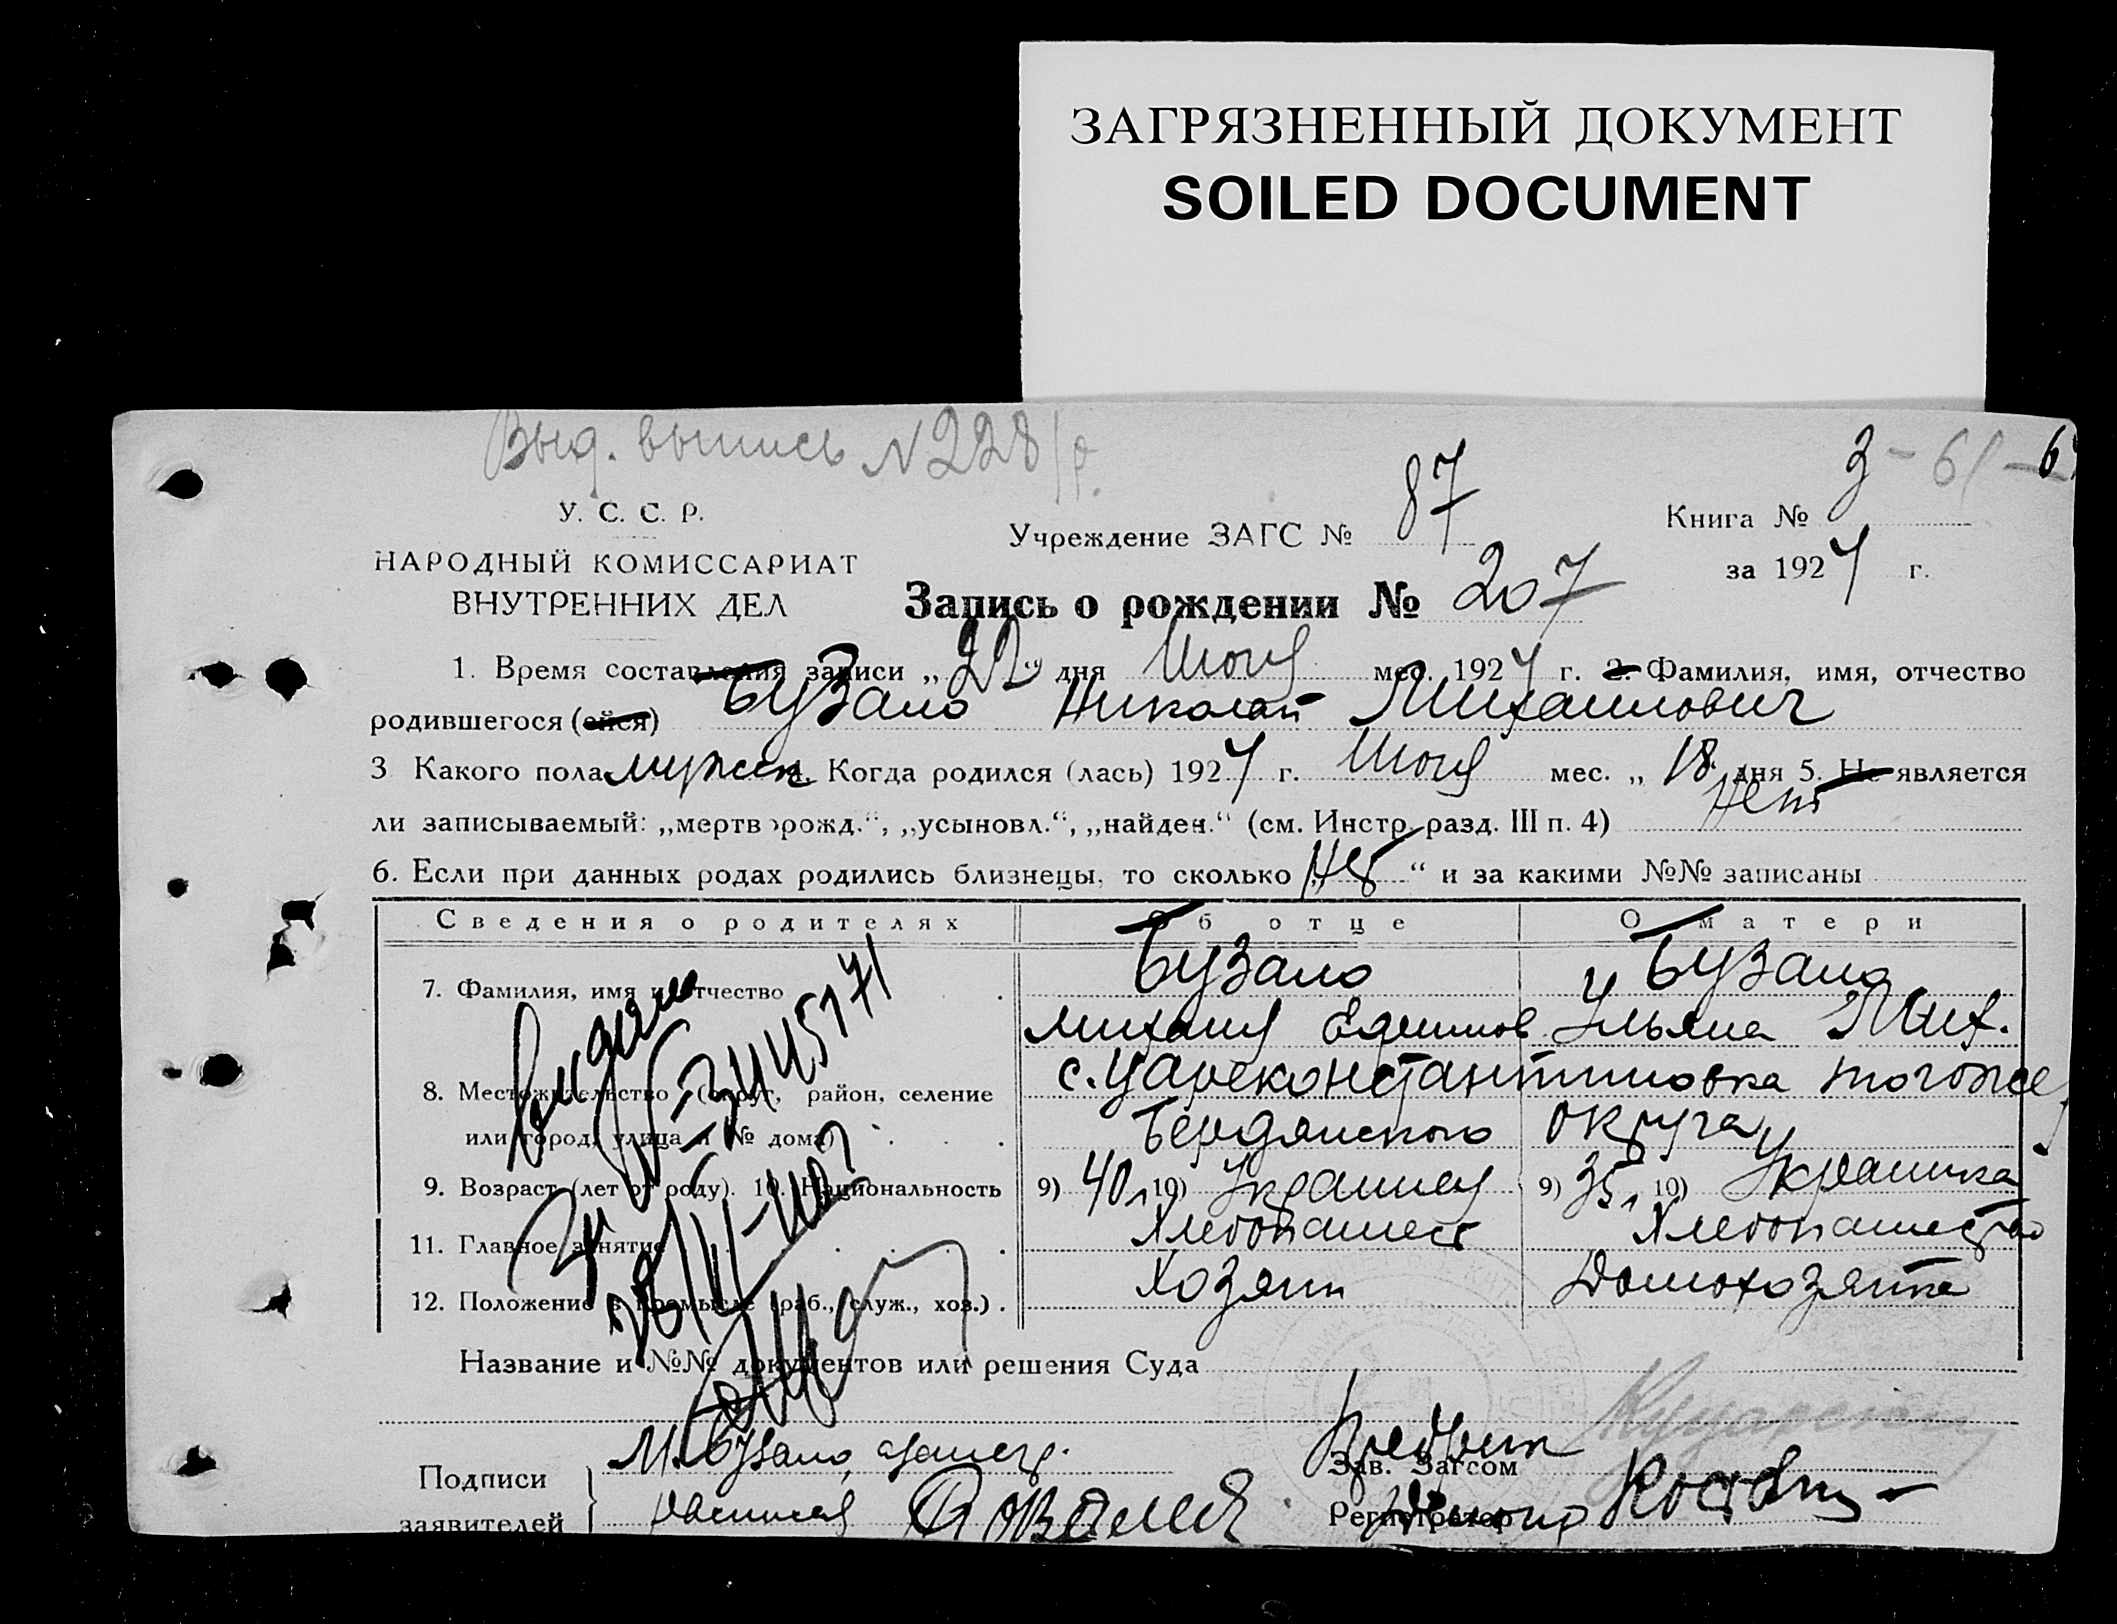 ЗАГРЯЗНЕННЫЙ ДОКУМЕНТ
SOILED DOCUMENT
Выд. выпись N 228/р.
3 - 61 - 6
У. С. С. Р.
НАРОДНЫЙ КОМИССАРИАТ
ВНУТРЕННИХ ДЕЛ
Учреждение ЗАГС № 87
Книга № 3
за 1924 г.
Запись о рождении № 207
1. Время составления записи „22“ дня Июля мес. 1924 г. 2. Фамилия, имя, отчество
родившегося (ейся) Бузало Николай Михайлович
3 Какого пола мужск 4. Когда родился (лась) 1924 г. Июля мес. „18. дня 5. Не является
ли записываемый: „мертворожд.“, „усыновл.“, „найден.“ (см. Инстр. разд. III п. 4) Нет
6. Если при данных родах родились близнецы, то сколько „Нет“ и за какими №№ записаны
Сведения о родителях Об отце О матери
7. Фамилия, имя и отчество Бузало Бузало
Михаил Ефимов Ульяна Мих.
8. Местожительство (округ, район, селение с. Цареконстантиновка того же
или город, улица и № дома) Бердянского округа
9. Возраст (лет от роду). 10. Национальность 9) 40 10) Украинец 9) 35 10) Украинка
11. Главное занятие Хлебопашест Хлебопашество
12. Положение в промысле (раб., служ., хоз.) Хозяин Домохозяйка
Название и №№ документов или решения Суда
Подписи
заявителей
М. Бузало
Зав. Загсом
Регистратор